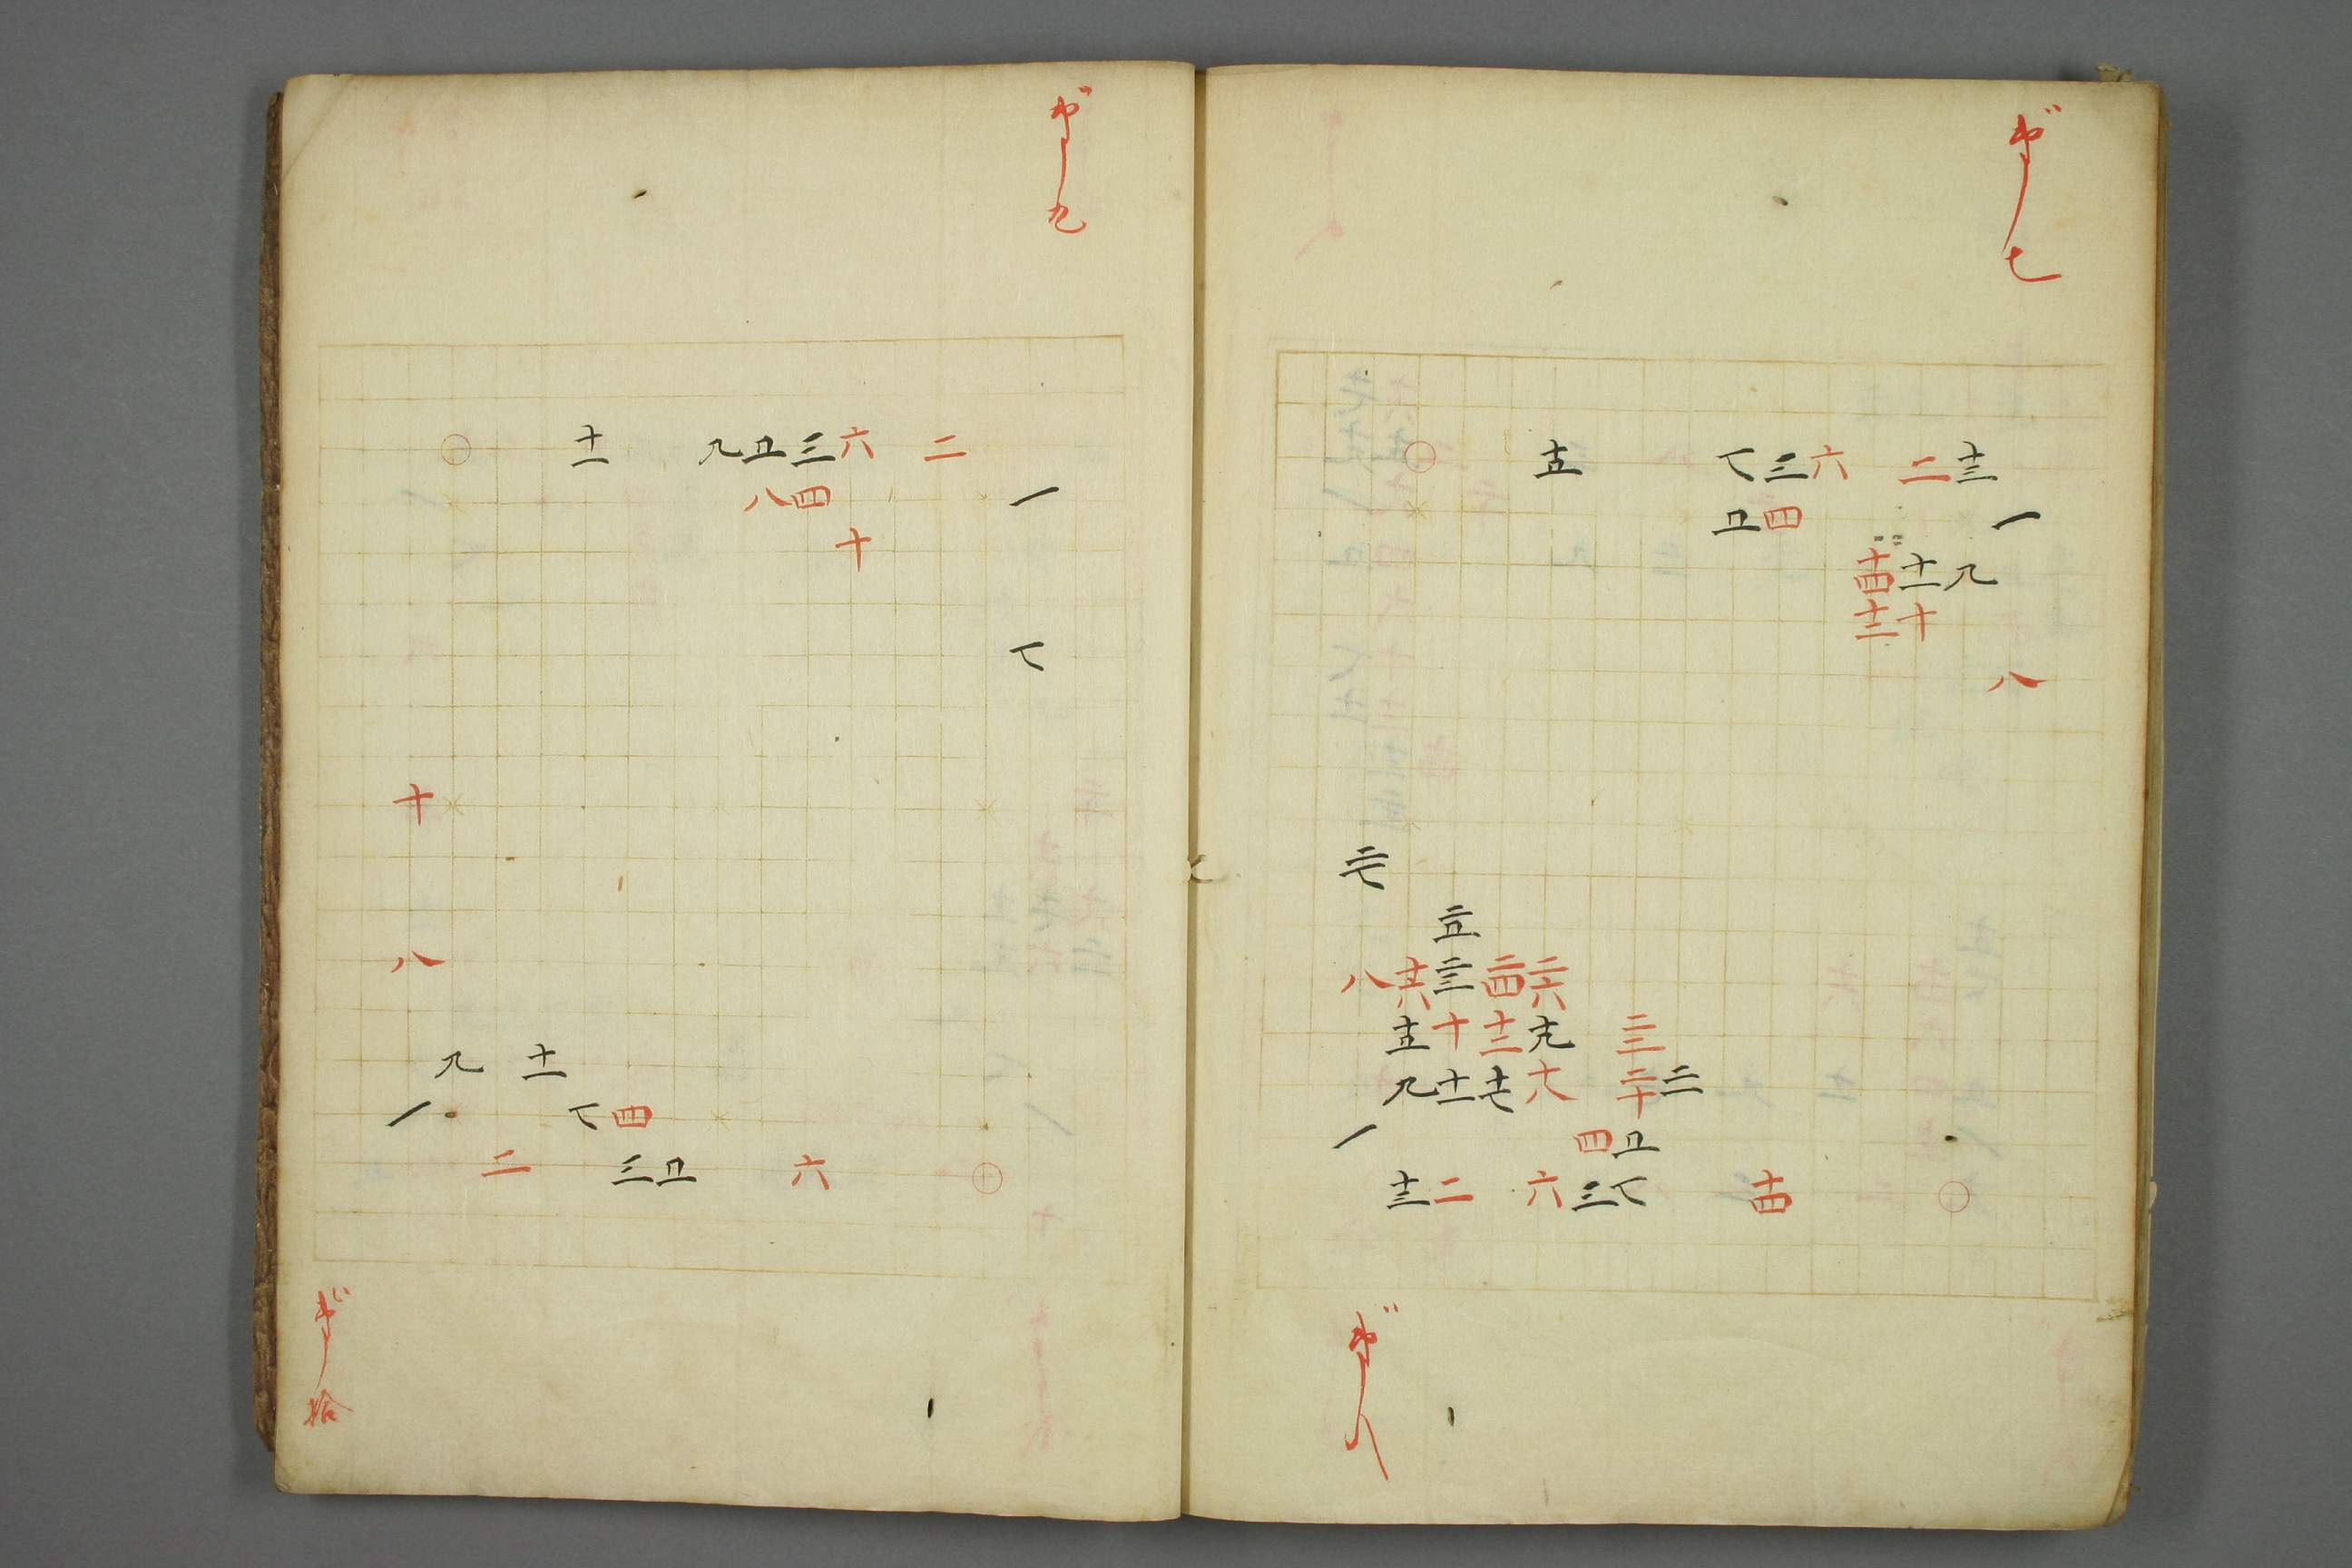 第七
十五 七 三 六 二 十三
五 四 一
十四 十一 九
十二 十
八
二十七
二十五
八 十六 二十三 二十四 二十六
十五 十 十二 十九 二十二
九 十一 十七 十八 二十 二十一
一 四 五
十三 二 六 三 七 十四
第八
第九
十一 九 五 三 六 二
八 四 一
十
七
十
八
九 十一
一 七 四
二 三 五 六
第拾